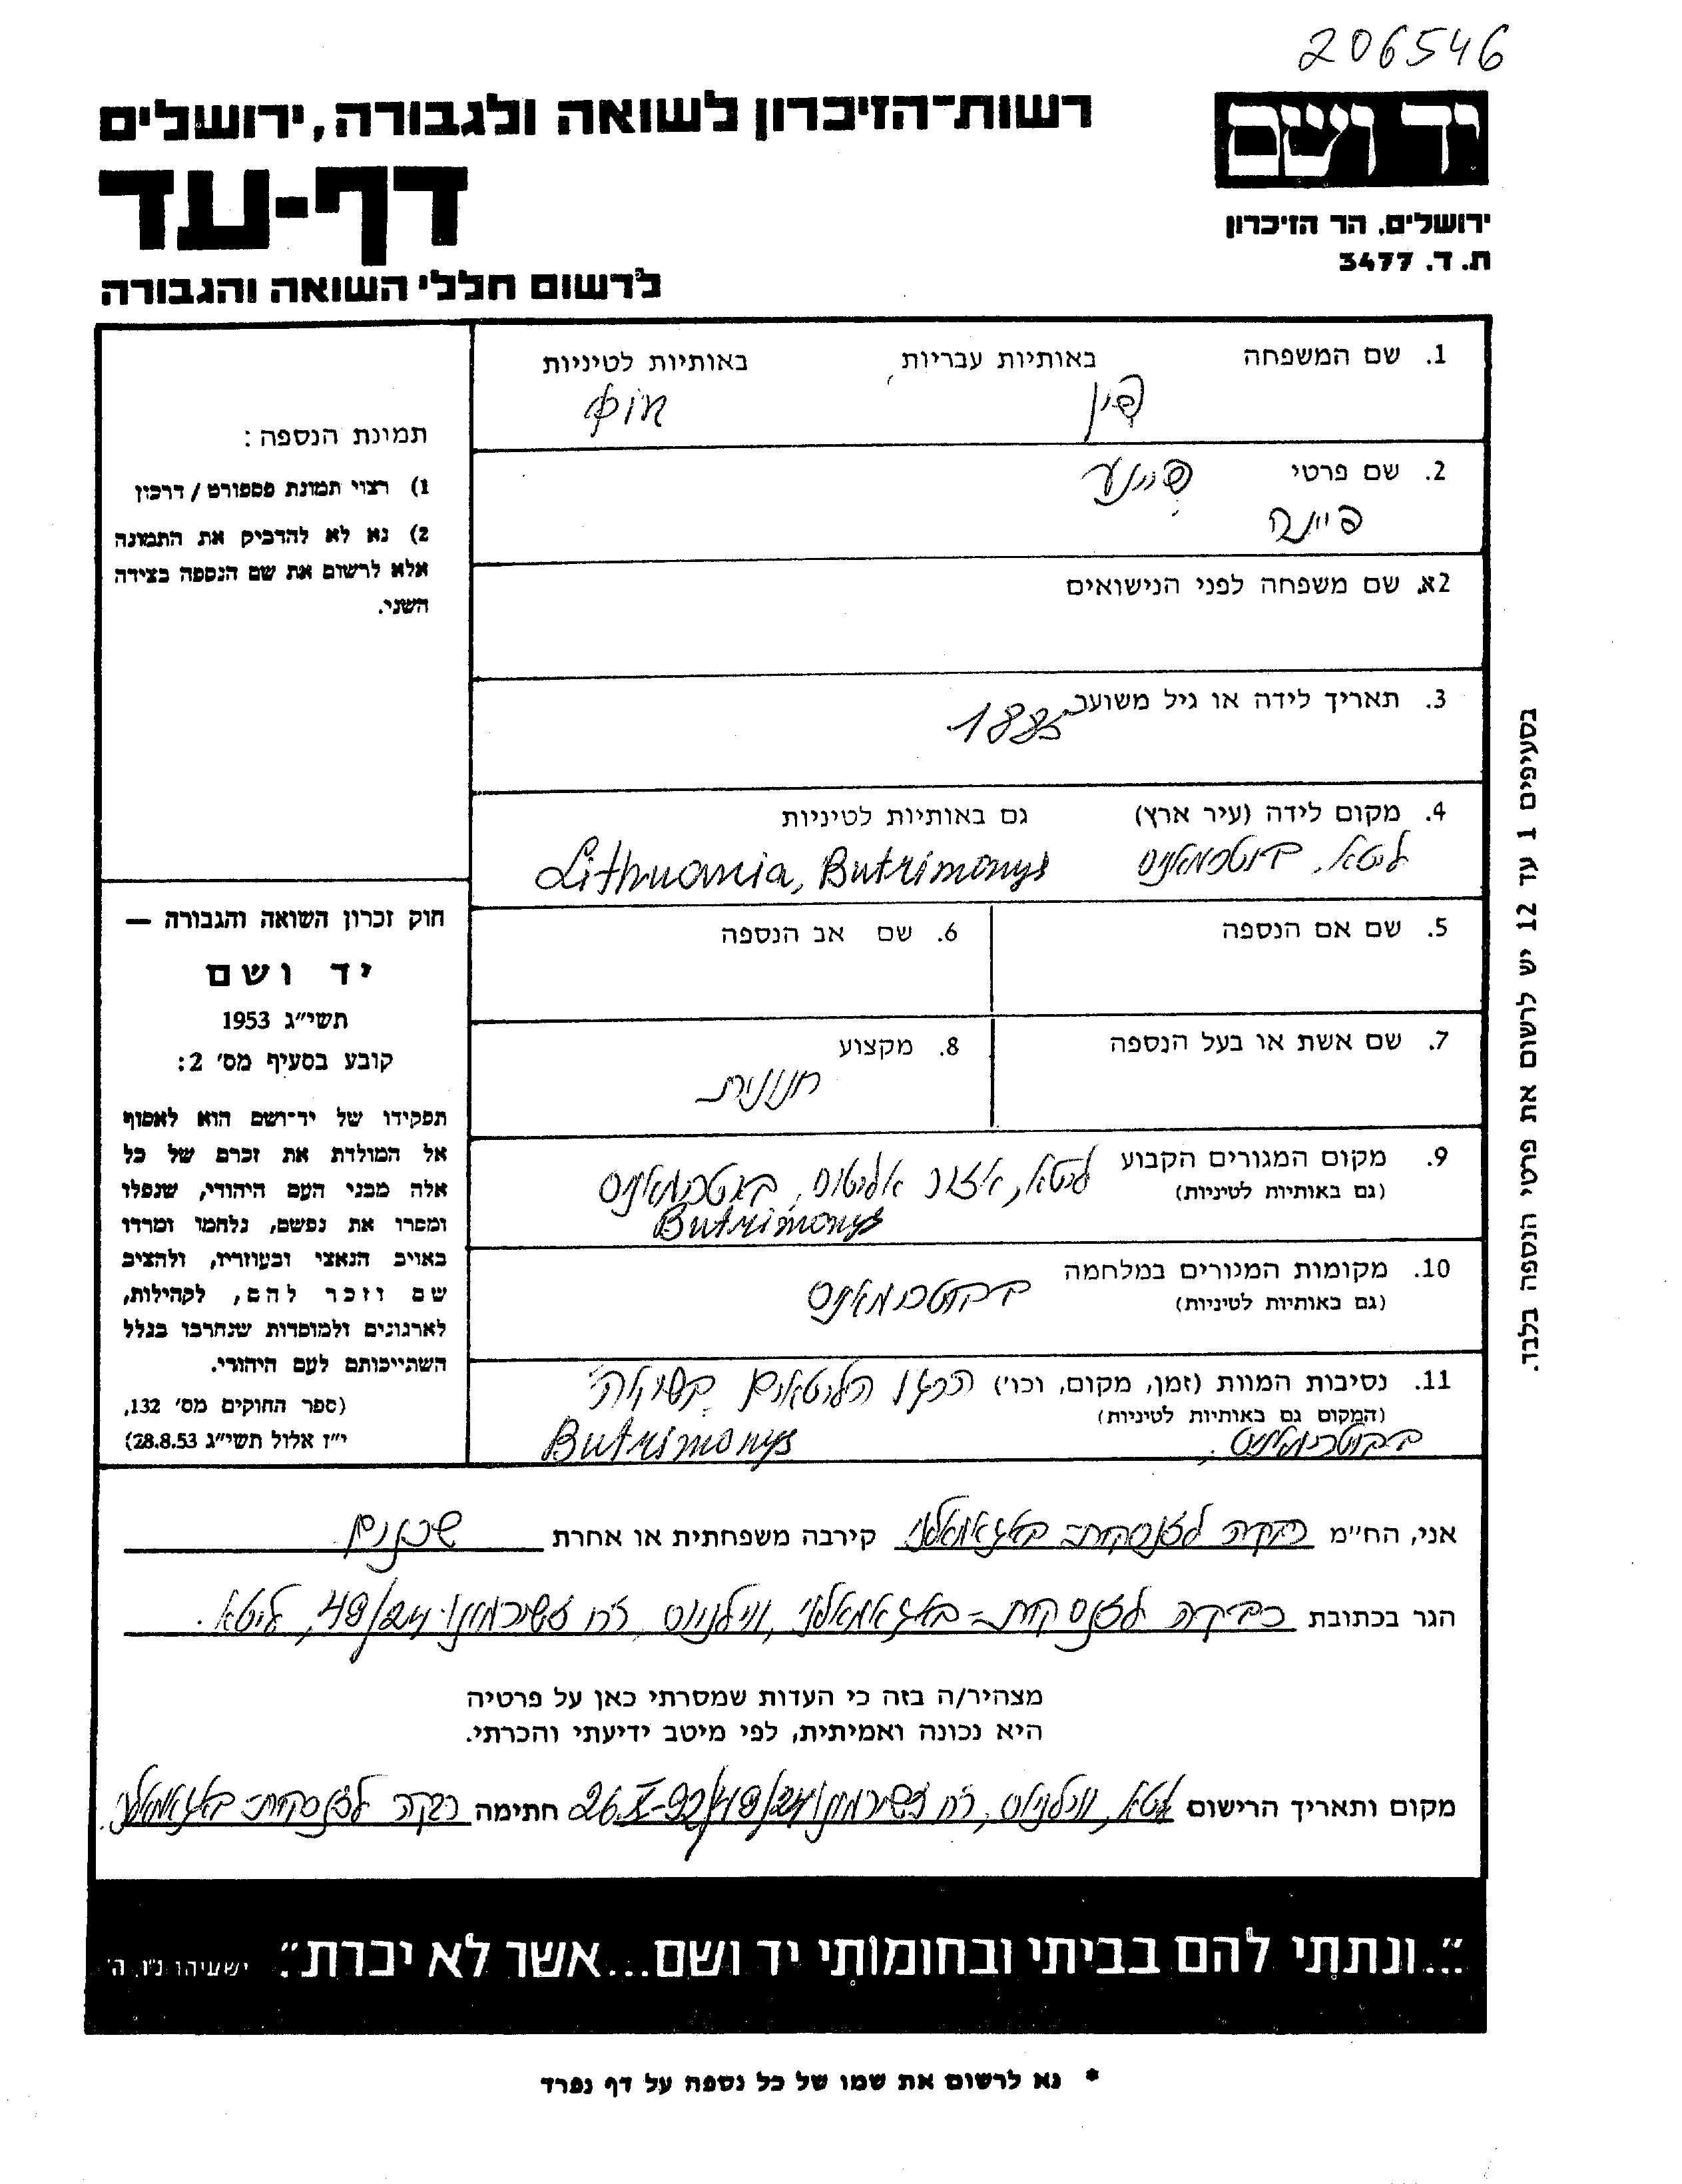 206546
יד ושם
רשות־הזיכרון לשואה ולגבורה, ירושלים
דף-עד
ירושלים, הר הזיכרון
ת.ד. 3477
לרשום חללי השואה והגבורה
1. שם המשפחה באותיות עבריות באותיות לטיניות
פיין
2. שם פרטי פיינע
פיינה
2א. שם משפחה לפני הנישואים
3. תאריך לידה או גיל משוער
1885
4. מקום לידה (עיר ארץ) גם באותיות לטיניות
ליטא, בוטרימאניס Lithuania, Butrimonys
5. שם אם הנספה
6. שם אב הנספה
7. שם אשת או בעל הנספה
8. מקצוע
חנונית
9. מקום המגורים הקבוע ליטא, אזור אליטוס, בוטרימאניס
(גם באותיות לטיניות)
Butrimonys
10. מקומות המגורים במלחמה
(גם באותיות לטיניות)
בבוטרימאניס
11. נסיבות המוות (זמן, מקום, וכו') הרגו הליטאים
(המקום גם באותיות לטיניות)
בבוטרימאניס, Butrimonys
תמונת הנספה:
1) רצוי תמונת פספורט / דרכון
2) נא לא להדביק את התמונה
אלא לרשום את שם הנספה בצידה
השני.
חוק זכרון השואה והגבורה —
יד ושם
תשי"ג 1953
קובע בסעיף מס' 2:
תפקידו של יד־ושם הוא לאסוף
אל המולדת את זכרם של כל
אלה מבני העם היהודי, שנפלו
ומסרו את נפשם, נלחמו ומרדו
באויב הנאצי ובעוזריו, ולהציב
שם וזכר להם, לקהילות,
לארגונים ולמוסדות שנחרבו בגלל
השתייכותם לעם היהודי.
(ספר החוקים מס' 132,
י"ז אלול תשי"ג 28.8.53)
בסעיפים 1 עד 12 יש לרשום את פרטי הנספה בלבד.
אני, הח"מ רבקה קירבה משפחתית או אחרת שכנים
הגר בכתובת רבקה ווילניוס, 48/24, ליטא.
מצהיר/ה בזה כי העדות שמסרתי כאן על פרטיה
היא נכונה ואמיתית, לפי מיטב ידיעתי והכרתי.
מקום ותאריך הרישום ליטא, ווילניוס, חתימה רבקה
"...ונתתי להם בביתי ובחומותי יד ושם...אשר לא יכרת". ישעיהו נ"ו, ה'
* נא לרשום את שמו של כל נספה על דף נפרד